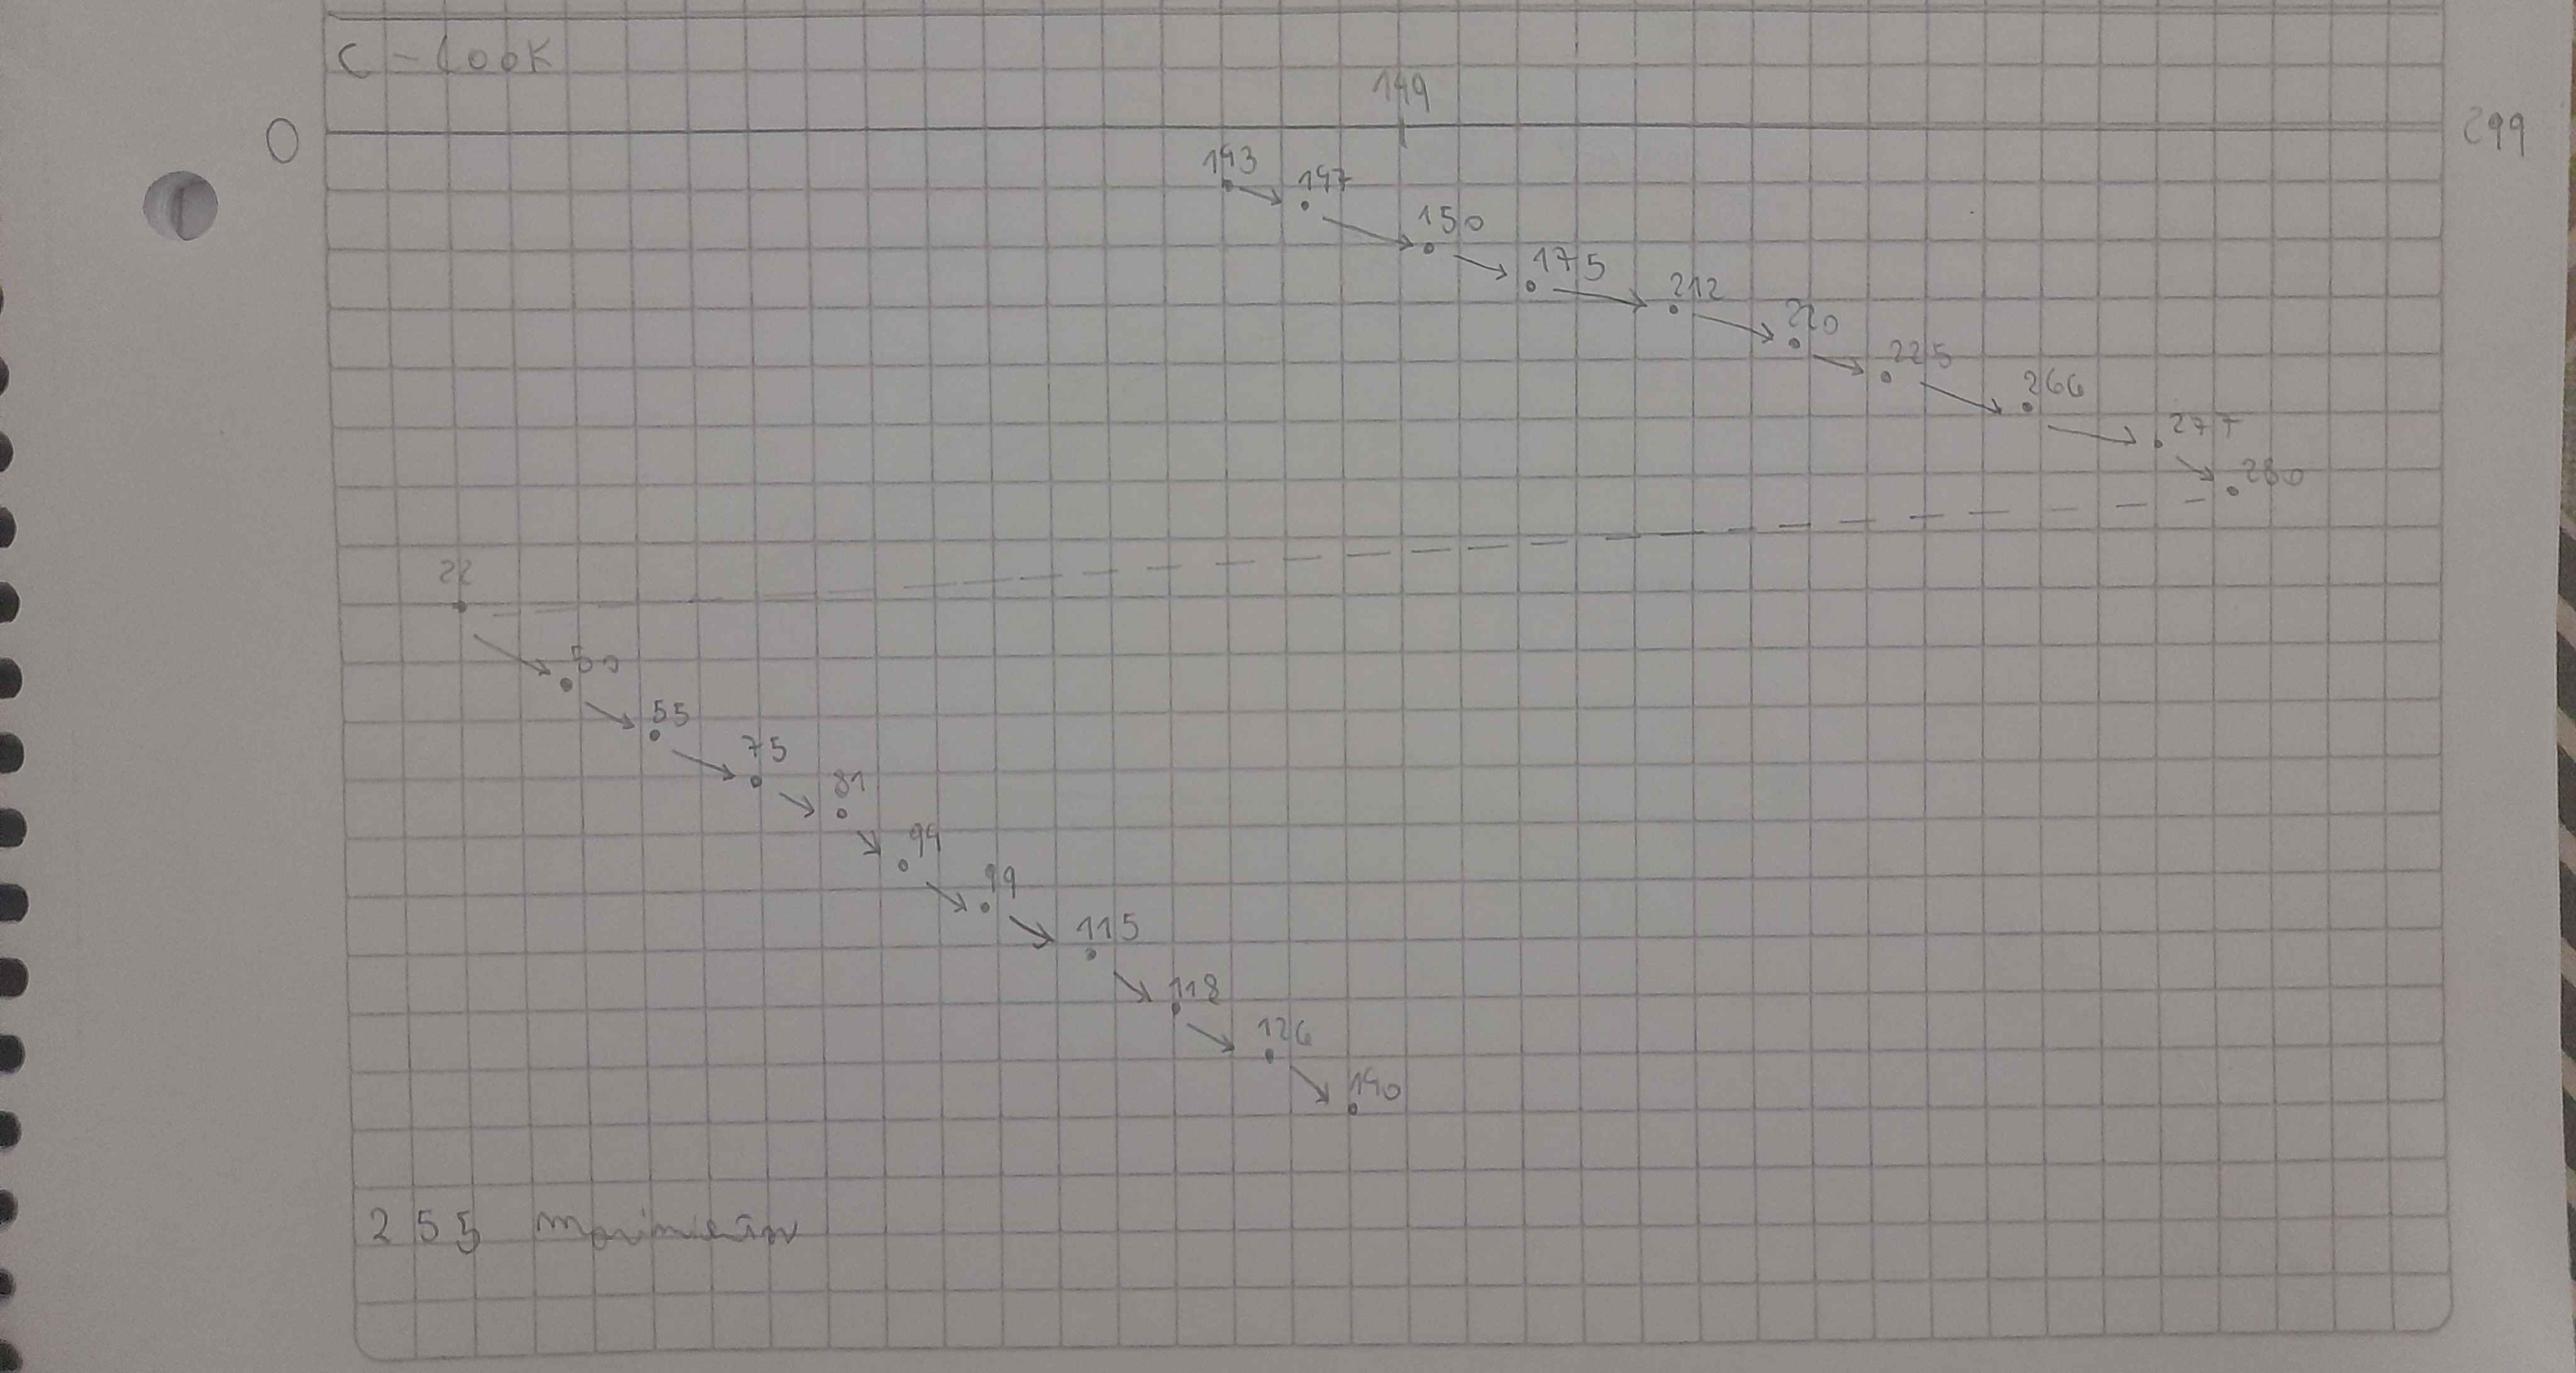 C-Look
149
0 299
143
147
150
175
212
220
225
266
277
280
22
50
55
75
81
94
99
115
118
126
140
255